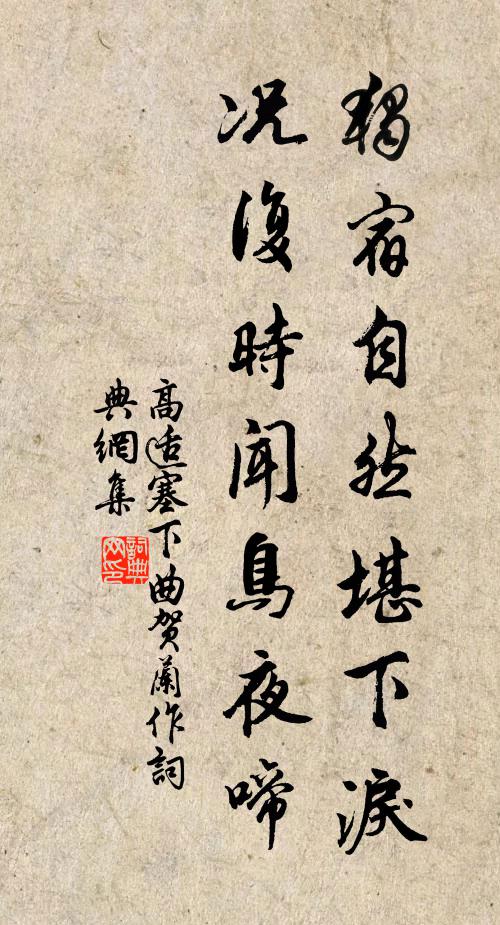 獨宿自然堪下淚
况復時聞烏夜啼
高適塞下曲賀蘭作詞
典網集
詞典
网印